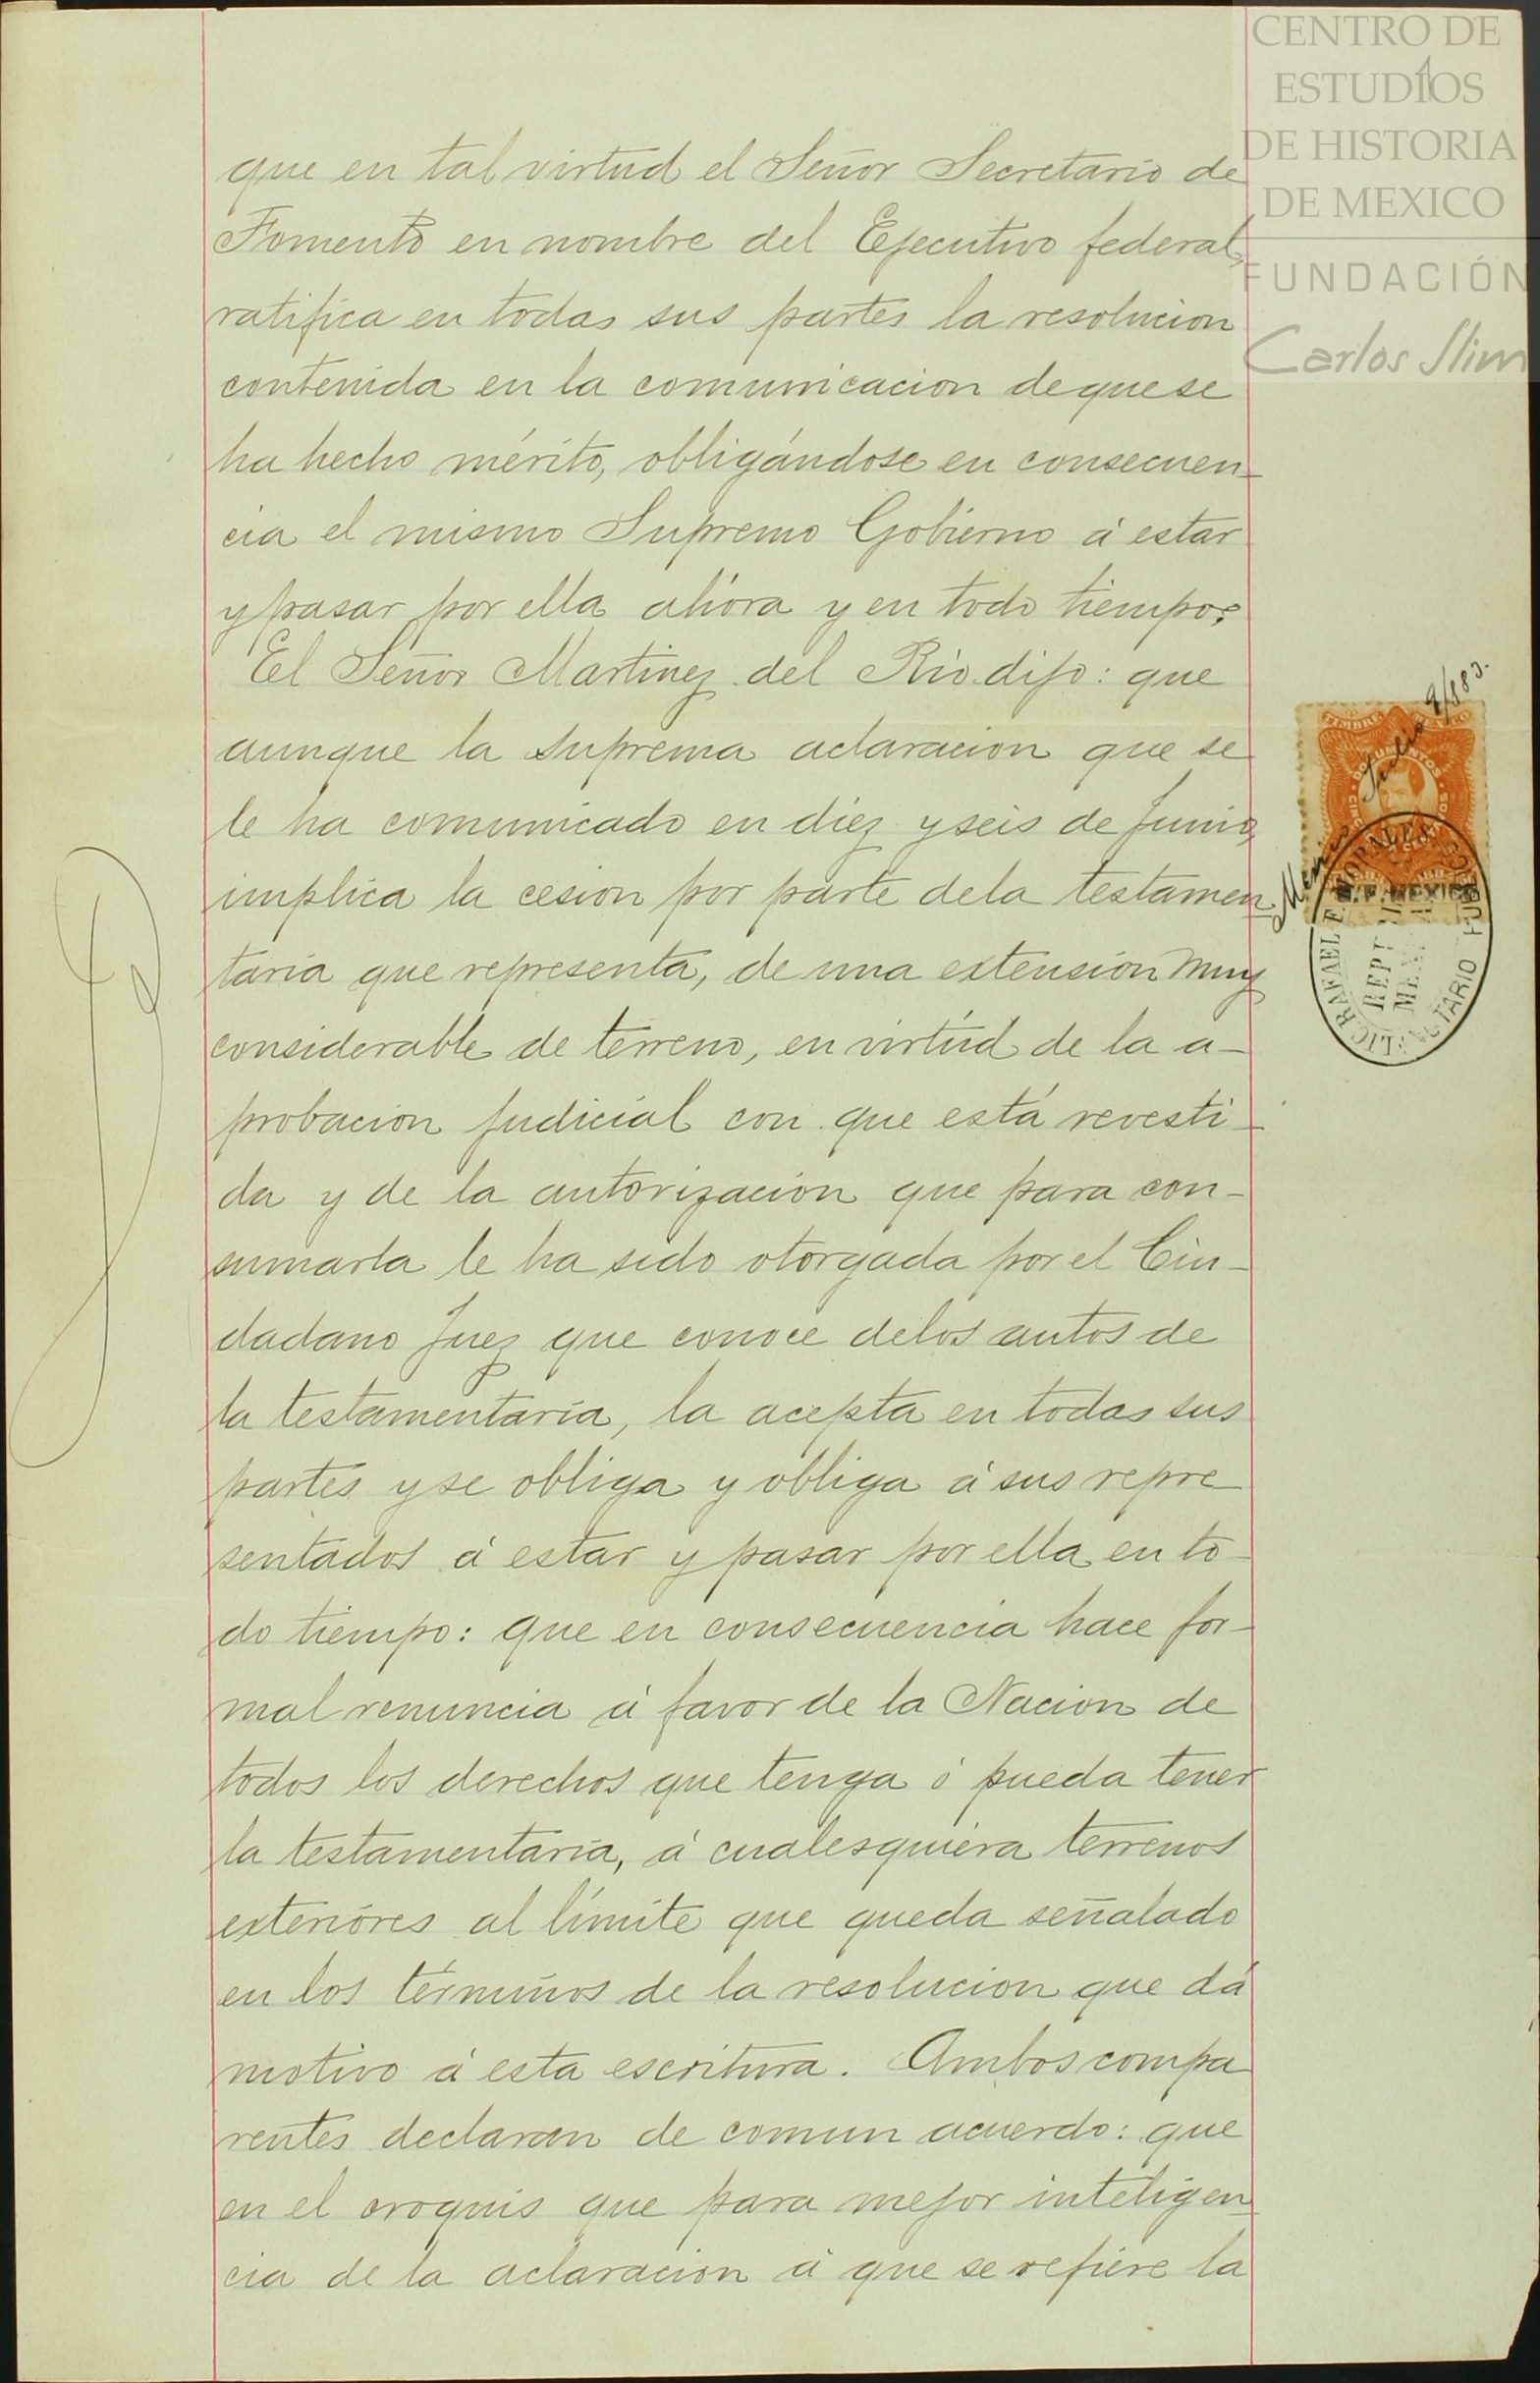 CENTRO DE
ESTUDIOS
DE HISTORIA
DE MEXICO
FUNDACIÓN
Carlos Slim
que en tal virtud el Señor Secretario de
Fomento en nombre del Ejecutivo federal,
ratifica en todas sus partes la resolucion
contenida en la comunicacion de que se
ha hecho mérito, obligándose en consecuen-
cia el mismo Supremo Gobierno á estar
y pasar por ella ahora y en todo tiempo;
El Señor Martinez del Rio dijo: que
aunque la suprema aclaracion que se
le ha comunicado en diez y seis de Junio
implica la cesion por parte de la testamen
taria que representa, de una extension muy
considerable de terreno, en virtud de la a-
probacion judicial con que está revesti-
da y de la autorizacion que para con-
sumarla le ha sido otorgada por el Ciu-
dadano Juez que conoce de los autos de
la testamentaría, la acepta en todas sus
partes y se obliga y obliga á sus repre
sentados á estar y pasar por ella en to-
do tiempo: que en consecuencia hace for-
mal renuncia á favor de la Nacion de
todos los derechos que tenga ó pueda tener
la testamentaría, á cualesquiera terrenos
exteriores al límite que queda señalado
en los términos de la resolucion que dá
motivo á esta escritura. Ambos compa
rentes declaran de comun acuerdo: que
en el croquis que para mejor inteligen
cia de la aclaracion á que se refiere la
Julio 9/883.
TIMBRE
MEXICO
LIC. RAFAEL F. MORALES